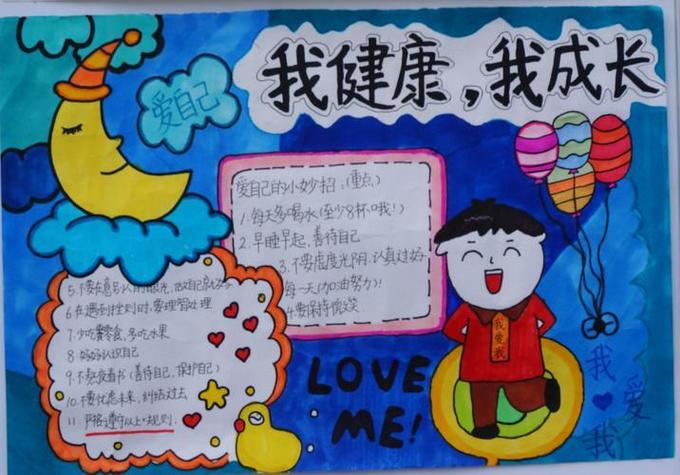 我健康，我成长
爱自己
爱自己的小妙招：（重点）
1.每天多喝水（至少8杯哦！）
2.早睡早起，善待自己
3.不要虚度光阴，认真过好
每一天（加油努力）！
4.要保持微笑
5.不要在意别人的眼光，做自己就好
6.在遇到挫折时，要理智处理
7.少吃零食，多吃水果
8.好好认识自己
9.不熬夜看书（善待自己，保护自己）
10.不要忧虑未来，纠结过去
11.严格遵守以上规则！
我爱我
LOVE
ME!
我
爱
我